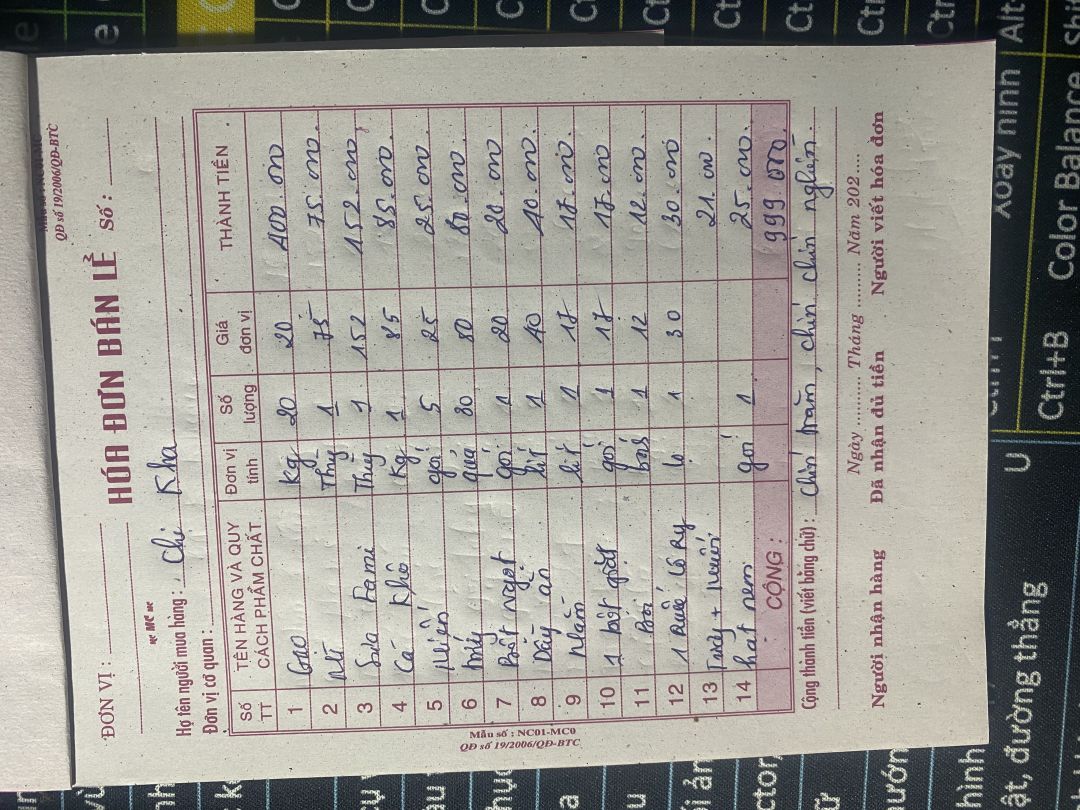 QĐ số 19/2006/QĐ-BTC
ĐƠN VỊ :
HÓA ĐƠN BÁN LẺ
Số :
Họ tên người mua hàng : Chị Kha
Đơn vị cơ quan :
Số TT TÊN HÀNG VÀ QUY CÁCH PHẨM CHẤT Đơn vị tính Số lượng Giá đơn vị THÀNH TIỀN
1 Gạo Kg 20 20 400.000
2 Mì Thùng 1 75 75.000.
3 Sữa Fami Thùng 1 152 152.000,
4 Cá Khô Kg 1 85 85.000.
5 Miến gói 5 25 25.000.
6 quả 80 80.000.
7 Bột ngọt gói 1 20 20.000
8 Dầu ăn lít 1 40 40.000.
9 Mắm lít 1 17 17.000.
10 1 bột giặt gói 1 17 17.000
11 1 12 12.000.
12 1 lọ 1 30 30.000
13 21.000.
14 hạt nem gói 1 25.000.
CỘNG : 999.000.
Cộng thành tiền (viết bằng chữ) : Chín trăm, chín chín nghìn.
Ngày .......... Tháng .......... Năm 202...
Người nhận hàng Đã nhận đủ tiền Người viết hóa đơn
Mẫu số : NC01-MC0
QĐ số 19/2006/QĐ-BTC
Ctrl+B Color Balance
U
ật, đường thẳng